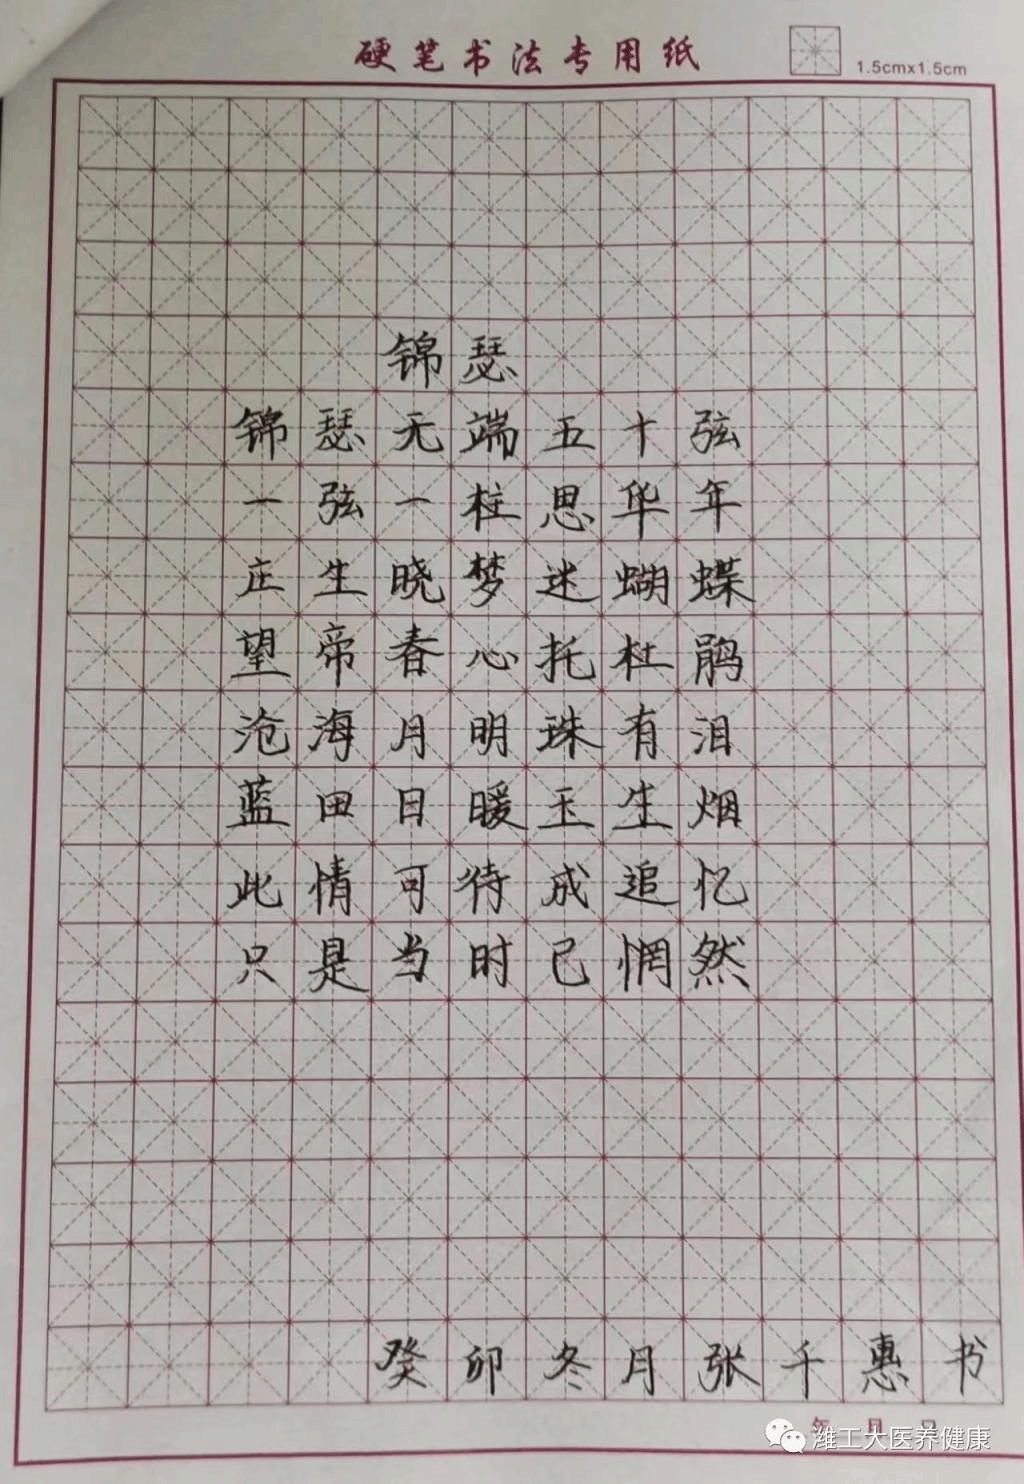 硬笔书法专用纸
1.5cmx1.5cm
锦瑟
锦瑟无端五十弦
一弦一柱思华年
庄生晓梦迷蝴蝶
望帝春心托杜鹃
沧海月明珠有泪
蓝田日暖玉生烟
此情可待成追忆
只是当时已惘然
癸卯冬月张千惠书
年 月 日
潍工大医养健康